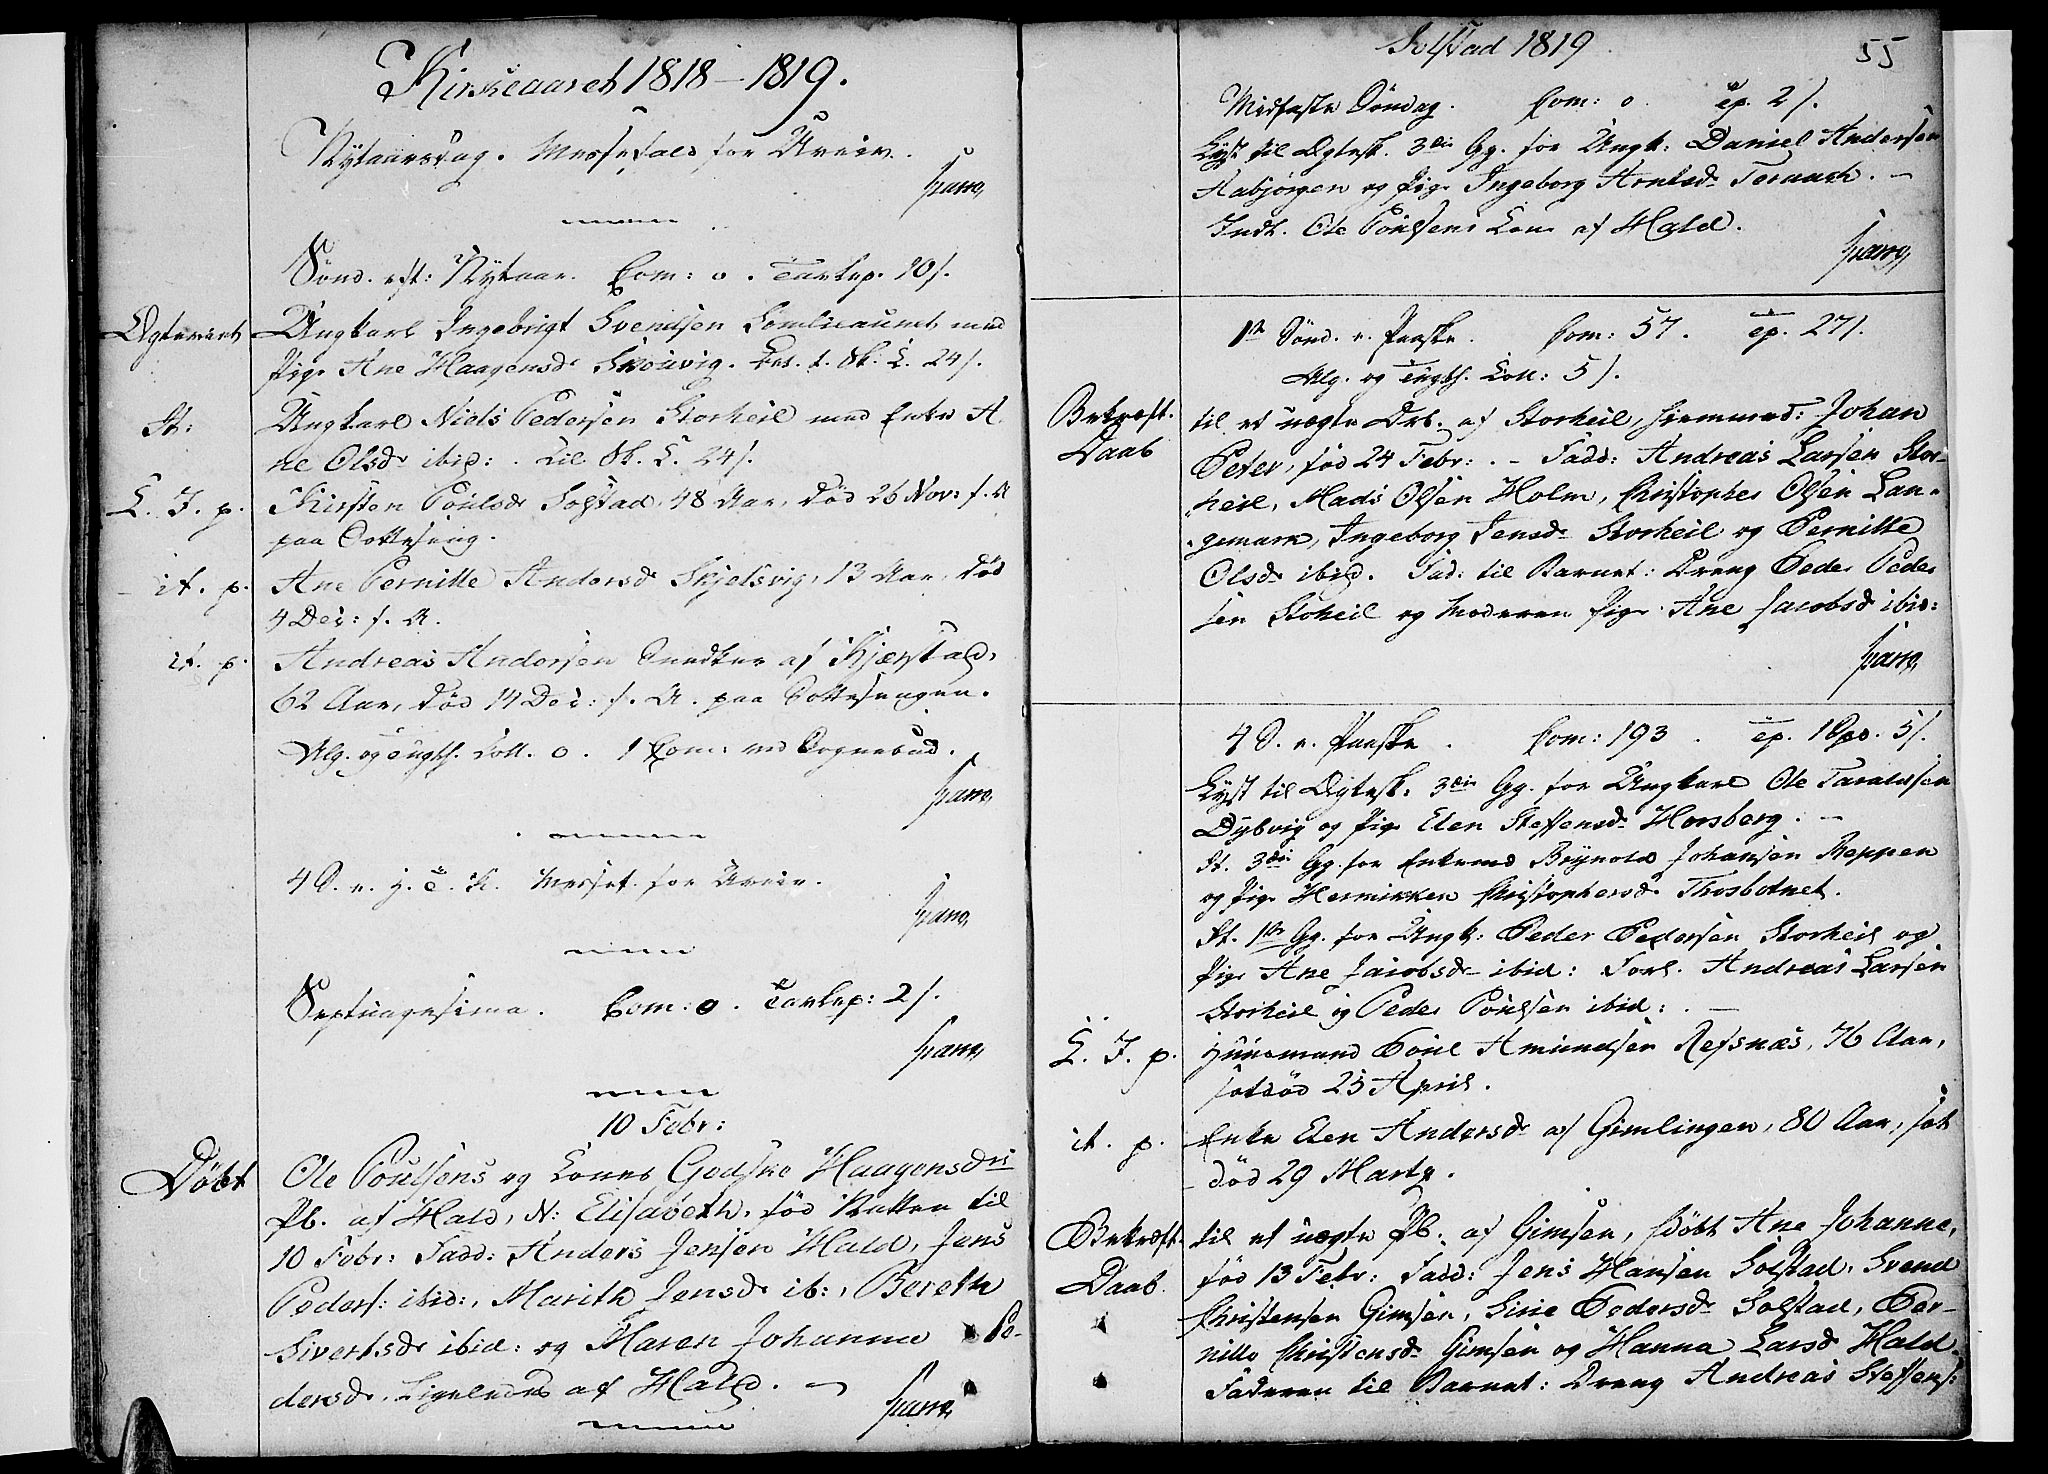 Kirkeaaret 1818–1819.
Nytaarsdag. Messefald for Uveir.
Sønd. eft: Nytaar. Com: 0. Tavlep. 10/.
Ægteviet Ungkarl Ingebrigt Svendsen Somliaunet med
Pige Ane Haagensdr Skouvig. t. Sk. C. 24/.
It: Ungkarl Niels Pedersen Storheil med Enke A
ne Olsdr ibid: . til Sk. C. 24/.
J. p. Kirsten Poulsdr Solstad, 48 Aar, død 26 Nov: f. A
paa Sotteseng.
it. p. Ane Pernille Andersdr Skjelsvig, 13 Aar, død
4 Dec: f. A.
it. p. Andreas Andersen Snedker af Kjærstad,
62 Aar, død 14 Dec: f. A. paa Sottesengen.
Alg. og Tugth. Coll. 0. 1 Com: ved Sognebud.
4 S. e. h. 3 K. Messef. for Uveir.
Septuagesima. Com: 0. Tavlep: 2/.
10 Febr:
Døbt Ole Poulsens og Kones Gedske Haagensdrs
Pb. af Hald, N: Elisabeth, fød Natten til
10 Febr: Fadd: Anders Jensen Hald, Jens
Peders: ibid:, Marith Jensdr ib:, Bereth
Sivertsdr ibid: og Maren Johanna Pe-
dersdr, Ligeledes af Hald. –
Solstad 1819
55
Midfaste Søndag. Com: 0. Tp. 2/.
Lyst til Ægtesk. 3die Gg. for Ungk: Daniel Andersen
Habjørgen og Pige Ingeborg Arntsdr Teraach. –
Indl. Ole Poulsens Kone af Hald.
1ste Sønd. e. Paaske. Com: 57. Tp. 27/.
Alg. og Tugth. Coll: 5/.
Bekræft. til et uægte Drb. af Storheil, hjemmed: Johan
Daab Peter, fød 24 Febr: . – Fadd: Andreas Larsen Stor-
heil, Mads Olsen Holm, Christopher Olsen Lan-
gemark, Ingeborg Jensdr Storheil og Pernille
Olsdr ibid. Fad: til Barnet: Dreng Peder Peder
sen Stoheil og Moderen Pige Ane Jacobsdr ibid:
4 S. e. Paaske. Com: 193. Tp. 1 Spd. 5/.
Lyst til Ægtesk. 3die Gg. for Ungkarl Ole Taraldsen
Dybvig og Pige Elen Steffensdr Horsberg. –
It. 3die Gg. for Enkemd Brynold Johansen Reppen
og Pige Hermikken Christophersdr Thosbotnet.
It. 1ste Gg. for Ungk: Peder Pedersen Storheil og
Pige Ane Jacobsdr ibid: Forl. Andreas Larsen
Storheil og Peder Poulsen ibid: –
J. p. Huusmand Poul Amundsen Refsnæs, 76 Aar,
sotdød 25 April.
it. p. Enke Elen Andersdr af Gimlingen, 80 Aar, sot
død 29 Marty.
Bekræft. til et uægte Pb. af Gimsen, Døbt Ane Johanne,
Daab. fød 13 Febr: Fadd: Jens Hansen Solstad, Svend
Christensen Gimsen, Sirie Pedersdr Solstad, Per-
nille Christensdr Gimsen og Hanna Larsdr Hald.
Faderen til Barnet: Dreng Andreas Steffens: